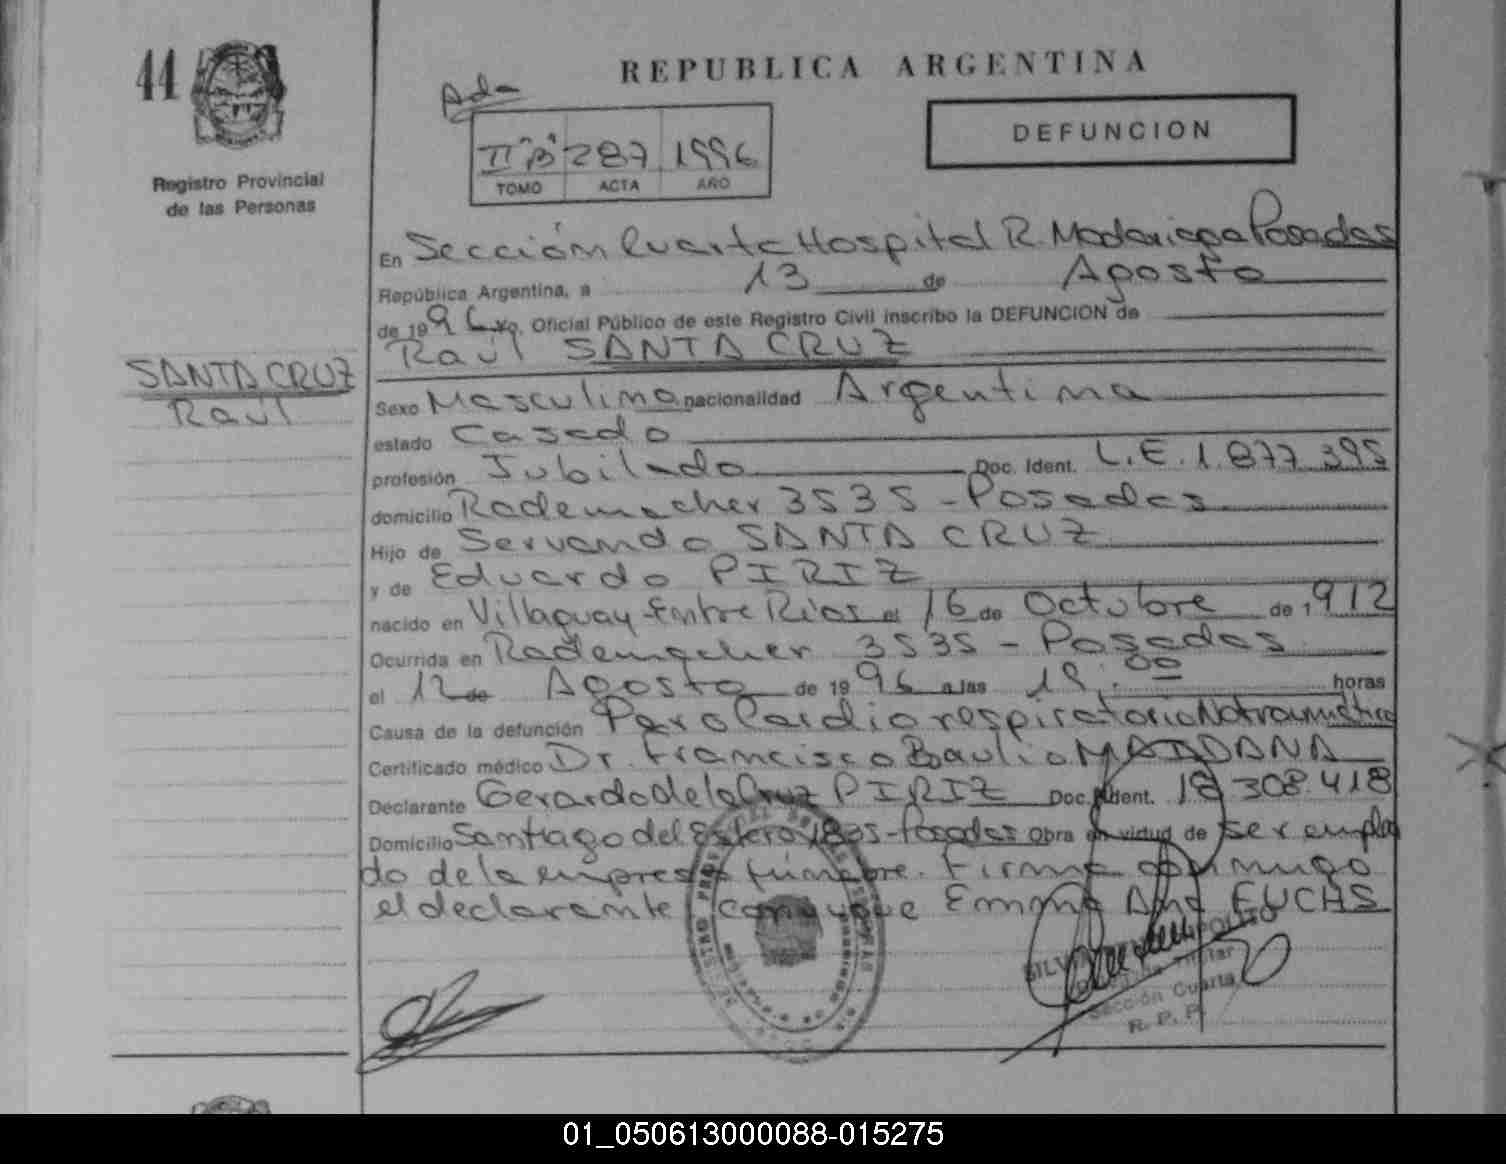 44
REPUBLICA ARGENTINA
Ada
DEFUNCION
II "B" 287 1996
TOMO ACTA AÑO
Registro Provincial
de las Personas
En Sección Cuarta Hospital R. Madariaga Posadas
República Argentina, a 13 de Agosto
de 1996 yo. Oficial Público de este Registro Civil inscribo la DEFUNCION de
Raúl SANTA CRUZ
SANTA CRUZ
Raúl
Sexo Masculino nacionalidad Argentina
estado Casado
profesión Jubilado Doc. Ident. L.E. 1.877.395
domicilio Rademacher 3535 - Posadas
Hijo de Servando SANTA CRUZ
y de Eduarda PIRIZ
nacido en Villaguay - Entre Ríos el 16 de Octubre de 1912
Ocurrida en Rademacher 3535 - Posadas
el 12 de Agosto de 1996 a las 19:00 horas
Causa de la defunción Paro Cardiorespiratorio No traumático
Certificado médico Dr. Francisco Braulio MAIDANA
Declarante Gerardo de la Cruz PIRIZ Doc. Ident. 18.308.418
Domicilio Santiago del Estero 1805 - Posadas Obra en virtud de ser emplea
do de la empresa fúnebre. Firma conmigo
el declarante conyuge Emma Ana FUCHS
Titular
Sección Cuarta
R. P. P.
01_050613000088-015275